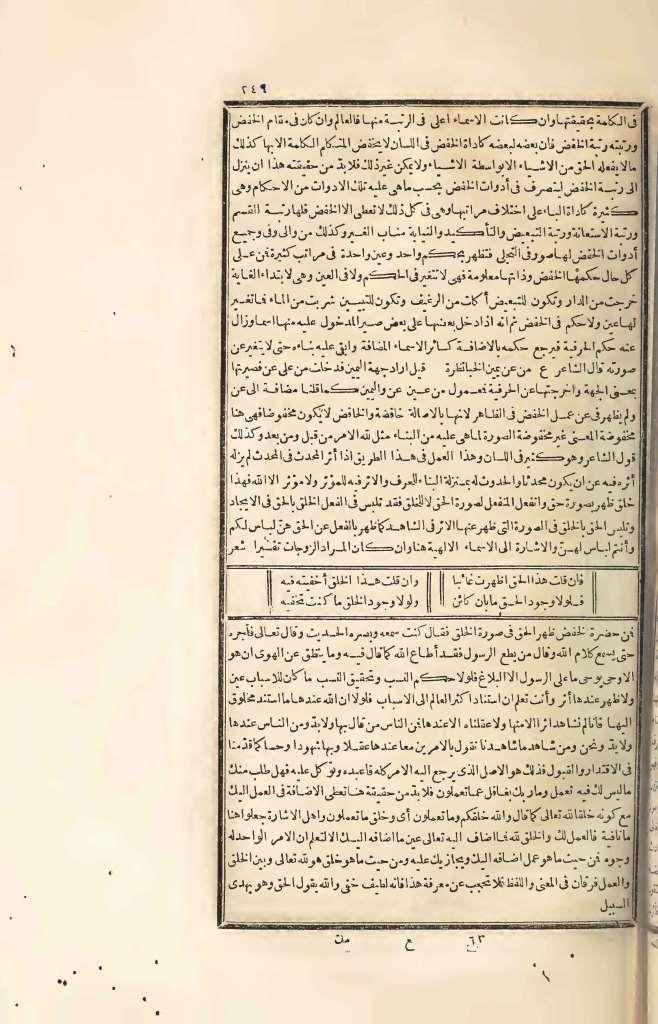 ٢٤٩
فى الكلمة بحقيقتها وان كانت الاسماء أعلى فى الرتبة منها فالعالم وان كان فى مقام الخفض
ورتبته رتبة الخفض فان بعضه لبعضه كاداة الخفض فى اللسان لا يخفض المتكلم الكلمة الا بها كذلك
ما لا يفعله الحق من الاشياء الا بواسطة الاشياء ولا يمكن غير ذلك فلا بد من حقيقته هذا ان ينزل
الى رتبة الخفض ليتصرف فى أدوات الخفض بحسب ما هى عليه تلك الادوات من الاحكام وهى
كثيرة كاداة الباء على اختلاف مراتبها وهى فى كل ذلك لا تعطى الا الخفض فلها رتبة القسم
ورتبة الاستعانة ورتبة التبعيض والتأكيد والنيابة مناب الغير وكذلك من والى وفى وجميع
أدوات الخفض لها صور فى التجلى فتظهر بحكم واحد وعين واحدة فى مراتب كثيرة فن على
كل حال حكمها الخفض وذاتها معلومة فهى لا تتغير فى الحكم ولا فى العين وهى لابتداء الغاية
خرجت من الدار وتكون للتبعيض أكلت من الرغيف وتكون للتبيين شربت من الماء فما تغير
لها عين ولا حكم فى الخفض ثم انه اذا دخل بعضها على بعض صير المدخول عليه منها اسما وزال
عنه حكم الحرفية فيرجع حكمه بالاضافة كسائر الاسماء المضافة وابقى عليه بناءه حتى لا يتغير عن
صورته قال الشاعر ع من عن يمين الخبا نظرة قبل اراد جهة اليمين فدخلت من على عن فصيرتها
بمعنى الجهة واخرجتها عن الحرفية فمعمول من عين عن واليمين كما قلنا مضافة الى عن
ولم يظهر فى عن عمل الخفض فى الظاهر لانها بالاصالة خافضة والخافض لا يكون مخفوضا فهى هنا
مخفوضة المعنى غير مخفوضة الصورة لما هى عليه من البناء مثل لله الامر من قبل ومن بعد وكذلك
قول الشاعر وهو كثير فى اللسان وهذا العمل فى هذا الطريق اذا أثر المحدث فى المحدث لم يزله
أثره فيه عن ان يكون محدثا والحدوث له بمنزلة البناء للحرف والاثر فيه للمؤثر ولا مؤثر الا الله فهذا
خلق ظهر بصورة حق وانفعل المنفعل لصورة الحق لا للخلق فقد تلبس فى الفعل الخلق بالحق فى الايجاد
وتلبس الحق بالخلق فى الصورة التى ظهر عنها الاثر فى الشاهد كما ظهر بالفعل عن الحق هن لباس لكم
وأنتم لباس لهن والاشارة الى الاسماء الالهية هنا وان كان المراد الزوجات تفسيرا شعر
فان قلت هذا الحق اظهرت غائبا وان قلت هذا الخلق أخفيته فيه
فلولا وجود الحق ما بان كائن ولولا وجود الخلق ما كنت تخفيه
فن حضرة الخفض ظهر الحق فى صورة الخلق فقال كنت سمعه وبصره الحديث وقال تعالى فأجره
حتى يسمع كلام الله وقال من يطع الرسول فقد أطاع الله كما قال فيه وما ينطق عن الهوى ان هو
الا وحى يوحى ما على الرسول الا البلاغ فلولا حكم النسب وتحقيق النسب ما كان للاسباب عين
ولا ظهر عندها أثر وأنت تعلم ان استناد اكثر العالم الى الاسباب فلولا ان الله عندها ما استند مخلوق
اليها فانا لم نشاهد اثرا الا منها ولا عقلناه الا عندها فن الناس من قال بها ولا بد ومن الناس عندها
ولا بد ونحن ومن شاهد ما شاهدنا نقول بالامرين معا عندها عقلا وبها شهودا وحسا كما قدمنا
فى الاقتدار والقبول فذلك هو الاصل الذى يرجع اليه الامر كله فاعبده وتوكل عليه فهل طلب منك
ما ليس لك فيه تعمل وما ربك بغافل عما تعملون فلا بد من حقيقة هنا تعطى الاضافة فى العمل اليك
مع كونه خلقا لله تعالى كما قال والله خلقكم وما تعملون أى وخلق ما تعملون واهل الاشارة جعلوا هنا
ما نافية فالعمل لك والخلق لله فما اضاف اليه تعالى عين ما اضافه اليك الا لتعلم ان الامر الواحد له
وجوه فن حيث ما هو عمل اضافه اليك ويجازيك عليه ومن حيث ما هو خلق هو لله تعالى وبين الخلق
والعمل فرقان فى المعنى واللفظ فلا تحجب عن معرفة هذا فانه لطيف خفى والله يقول الحق وهو يهدى
السبيل
٦٣ ح مك